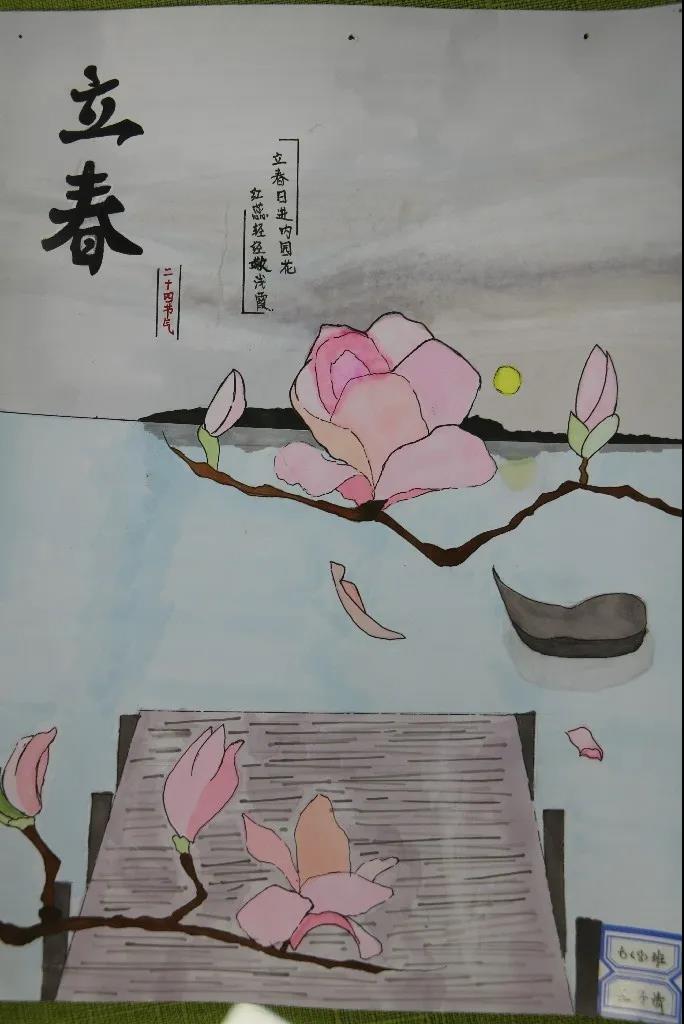 立春
二十四节气
立春日进内园花
红蕊轻轻嫩浅霞
班